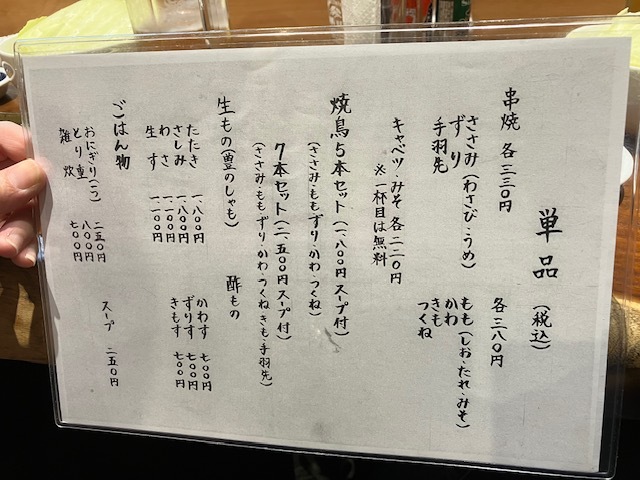 単品(税込)
串焼 各三三〇円
ささみ(わさび・うめ)
ずり
手羽先
各三八〇円
もも(しお・たれ・みそ)
かわ
きも
つくね
キャベツ・みそ 各二二〇円
※一杯目は無料
焼鳥5本セット(一、八〇〇円 スープ付)
(ささみ・もも・ずり・かわ・つくね)
7本セット(二、五〇〇円 スープ付)
(ささみ・もも・ずり・かわ・つくね・きも・手羽先)
生もの(豊のしゃも)
たたき 一、八〇〇円
さしみ 一、八〇〇円
わさ 一、一〇〇円
生ず 一、一〇〇円
酢もの
かわす 七〇〇円
ずりす 七〇〇円
きもす 七〇〇円
ごはん物
おにぎり(二つ) 二五〇円
とり重 八〇〇円
雑炊 七〇〇円
スープ 二五〇円